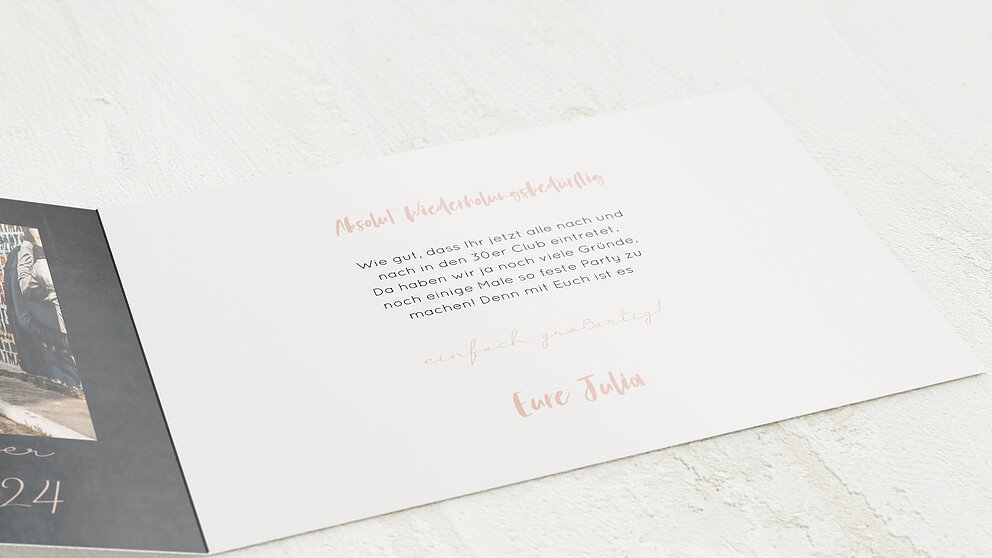 Absolut Wiederholungsbedürftig
Wie gut, dass Ihr jetzt alle nach und
nach in den 30er Club eintretet.
Da haben wir ja noch viele Gründe,
noch einige Male so feste Party zu
machen! Denn mit Euch ist es
einfach großartig!
Eure Julia
er
24